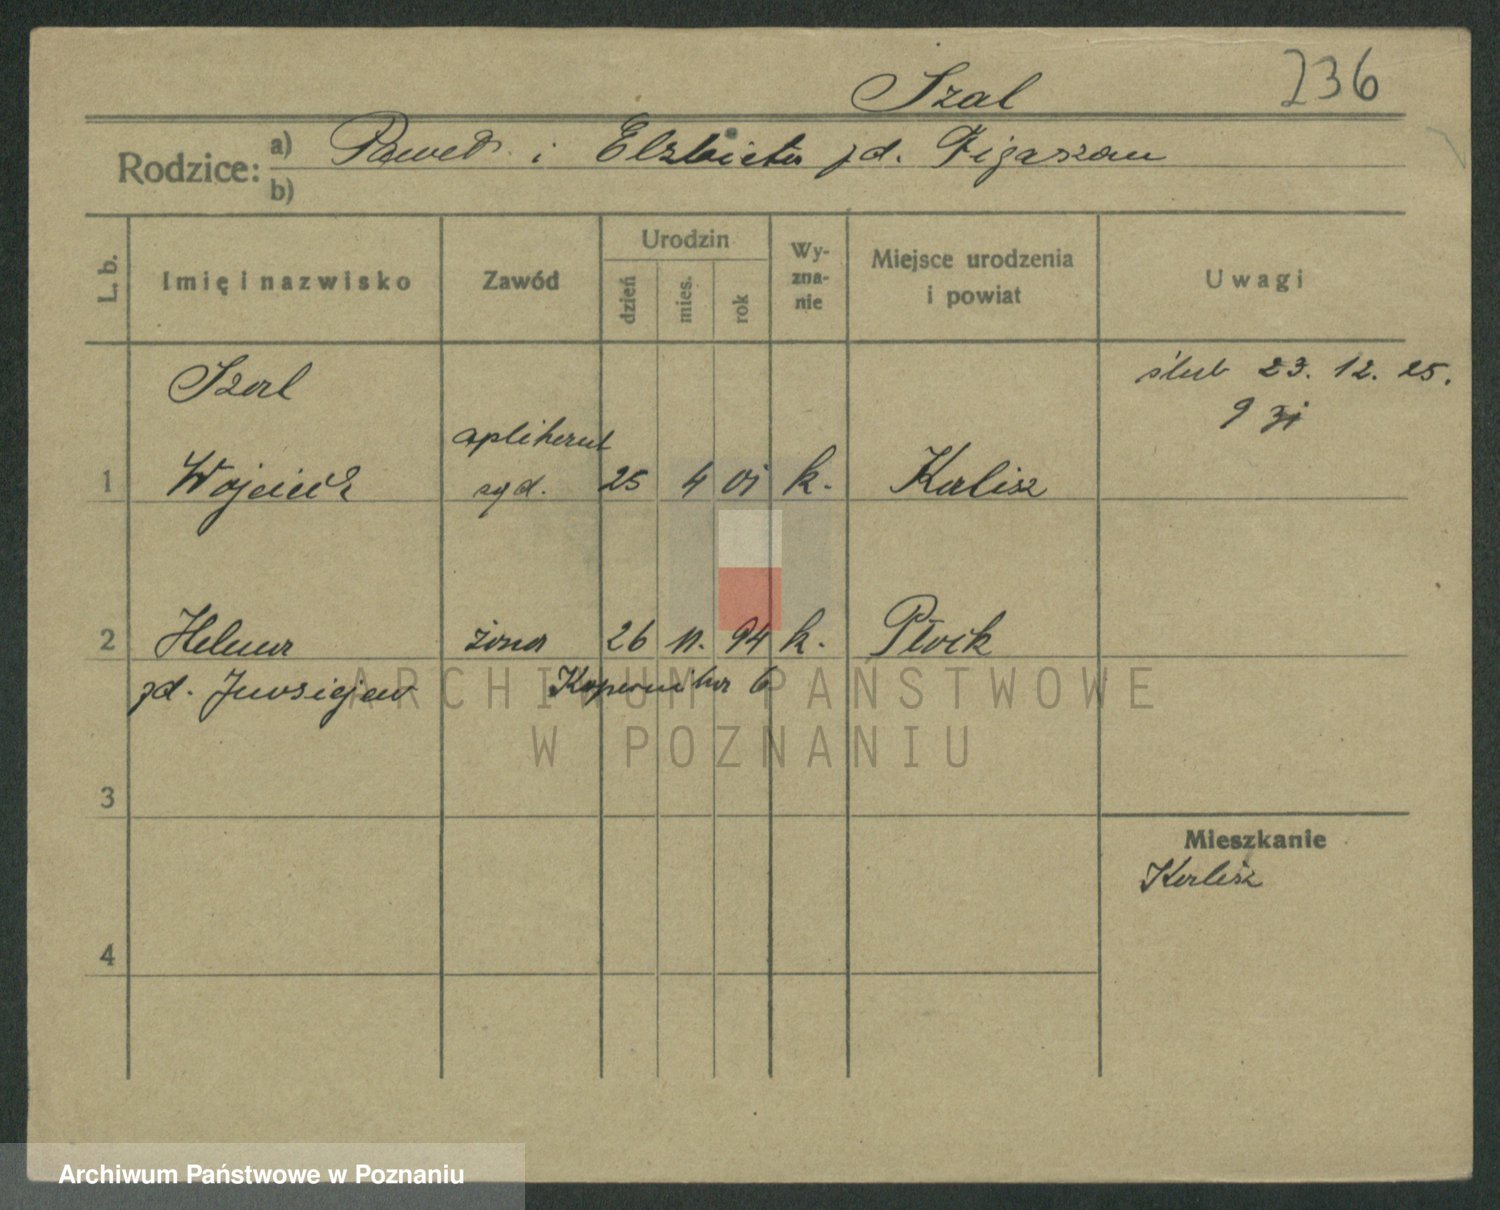 Szal 236
Rodzice: a) Paweł i Elżbieta zd.
b)
L. b. Imię i nazwisko Zawód Urodzin dzień mies. rok Wyznanie Miejsce urodzenia i powiat Uwagi
Szal ślub 23. 12. 25.
aplikant
1 Wojciech sąd. 25 4 01 k. Kalisz
2 Helena żona 26 11. 94 k. Płock
zd. Kopernika 6
3
Mieszkanie
Kalisz
4
ARCHIWUM PAŃSTWOWE
W POZNANIU
Archiwum Państwowe w Poznaniu